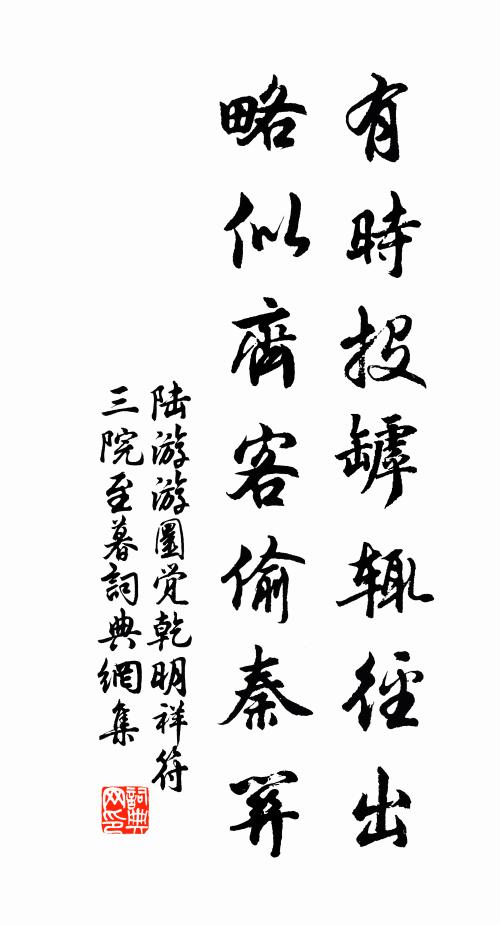 有時投罅輒徑出
略似齊客偷秦關
陆游游圓觉乾明祥符
三院至暮詞典網集
詞典
网印